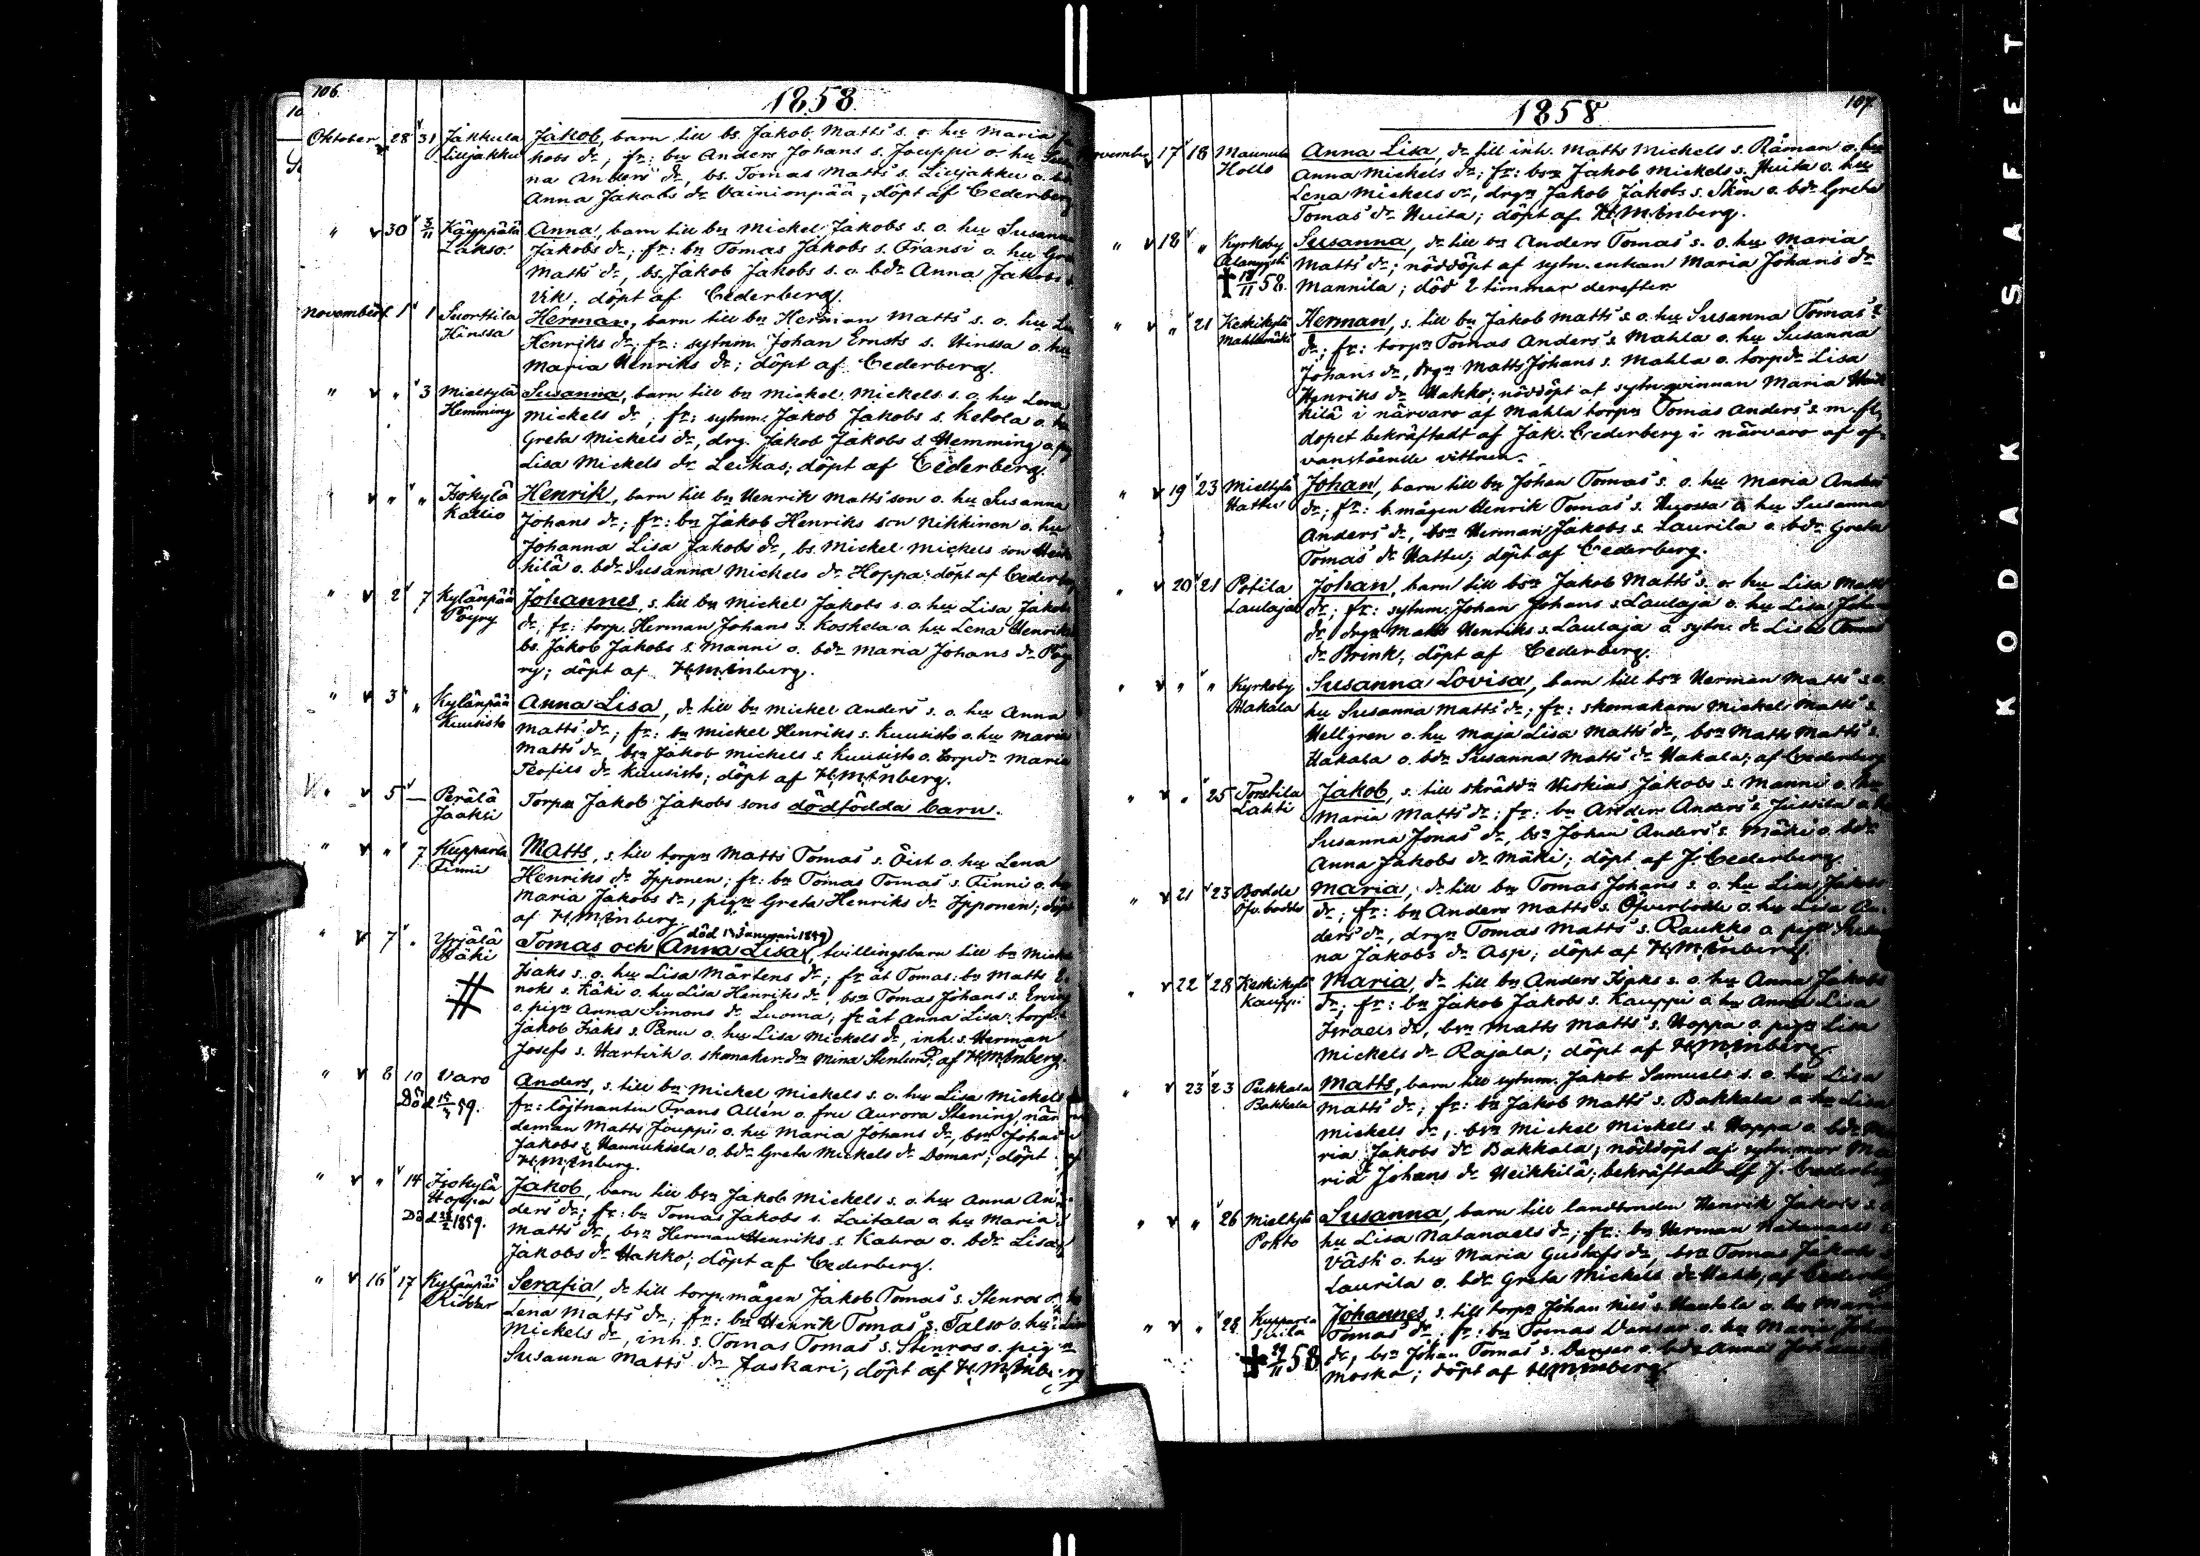 106.
1858.
Oktober 28 31 Jakkula Jakob, barn till bs. Jakob Matts s. o. hu Maria
Lilljakku kobs dr; fr: bn Anders Johans s. Jouppi o. hu
na Anders dr, bs. Tomas Matts s. Lilljakku o.
Anna Jakobs dr Vainionpää; döpt af Cederberg
" v 30 3/11 Käyppälä Anna, barn till bn Mickel Jakobs s. o. hu Susanna
Lakso. Jakobs dr; fr: bn Tomas Jakobs s. Fransi o. hu
Matts dr, bs. Jakob Jakobs s. o. bdr Anna Jakobs
Vik; döpt af Cederberg.
November 1 1 Suorttila Herman, barn till bn Herman Matts s. o. hu
Hinssa Henriks dr; fr: sytnm. Johan Ernsts s. Hinssa o. hu
Maria Henriks dr; döpt af Cederberg.
" v " 3 Mielkylä Susanna, barn till bn Mickel Mickels s. o. hu Lena
Hemming Mickels dr; fr: sytnm. Jakob Jakobs s. Ketola o. hu
Greta Mickels dr, drg. Jakob Jakobs s. Hemming o. pig
Lisa Mickels dr Leikas; döpt af Cederberg.
" v " " Isokylä Henrik, barn till bn Henrik Matts son o. hu Susanna
Kallio Johans dr; fr: bn Jakob Henriks son Nikkinen o. hu
Johanna Lisa Jakobs dr, bs. Mickel Mickels son
kilä o. bdr Susanna Mickels dr Hoppa; döpt af Cederberg
" v 2 7 Kylänpää Johannes, s. till bn Mickel Jakobs s. o. hu Lisa Jakobs
Pöyry dr; fr: torp. Herman Johans s. Koskela o. hu Lena Henriks
bs. Jakob Jakobs s. Manni o. bdr Maria Johans dr Pöy
ry; döpt af H.M. Enberg.
" v 3 " Kylänpää Anna Lisa, dr till bn Mickel Anders s. o. hu Anna
Kuusisto Matts dr; fr: bn Mickel Henriks s. Kuusisto o. hu Maria
Matts dr, bsn Jakob Mickels s. Kuusisto o. torpdr Maria
Teofils dr Kuusisto; döpt af H.M. Enberg.
" v 5 — Perälä Torpn Jakob Jakobs sons dödfödda barn.
Jaakki
" v " 7 Kupparla Matts, s. till torpn Matts Tomas s. Öist o. hu Lena
Finni Henriks dr Ipponen; fr: bn Tomas Tomas s. Finni o. hu
Maria Jakobs dr, pign Greta Henriks dr Ipponen; döpt
af H.M. Enberg.
död Januari 1859)
" v 7 " Yrjälä Tomas och (Anna Lisa), tvillingsbarn till bn Mickel
Käki Isaks s. o. hu Lisa Mårtens dr; fr åt Tomas: bn Matts E
noks s. Käki o. hu Lisa Henriks dr, bsn Tomas Johans s.
o. pign Anna Simons dr Luoma; fr åt Anna Lisa: torp.
Jakob Isaks s. Panu o. hu Lisa Mickels dr, inh. s. Herman
Josefs s. Hartvik o. skomaker.dr Mina Stenlund; af H.M. Enberg.
" v 8 10 Varo Anders, s. till bn Mickel Mickels s. o. hu Lisa Mickels
Död 59. fr: löjtnanten Frans Allén o. fru Aurora Stening, nän
deman Matts Jouppi o. hu Maria Johans dr, bsn Johan
Jakobs s. Hannuksela o. bdr Greta Mickels dr Domar; döpt af
H.M. Enberg.
" v " 14 Isokylä Jakob, barn till bsn Jakob Mickels s. o. hu Anna An
Hoppa ders dr; fr: bn Tomas Jakobs s. Laitala o. hu Maria
Död 1859. Matts dr, bsn Herman Henriks s. Katra o. bdr Lisa
Jakobs dr Hakko; döpt af Cederberg.
" v 16 17 Kylänpää Serafia, dr till torp.mågen Jakob Tomas s. Stenros o. hu
Riddar Lena Matts dr; fr: bn Henrik Tomas s. Talso o. hu
Mickels dr, inh. s. Tomas Tomas s. Stenros o. pign
Susanna Matts dr Jaskari; döpt af H.M. Enberg
1858
107.
November 17 18 Maunula Anna Lisa, dr till inh. Matts Mickels s. Råman o. hu
Hollo Anna Mickels dr; fr: bsn Jakob Mickels s. Huita o. hu
Lena Mickels dr, drgn Jakob Jakobs s. Skön o. bdr Greta
Tomas dr Huita; döpt af H.M. Enberg.
" v 18 " Kyrkoby Susanna, dr till bn Anders Tomas s. o. hu Maria
Matts dr; nöddöpt af sytn. enkan Maria Johans dr
† 18/11 58. Mannila; död 2 timmar derefter
" v " 21 Keskikylä Herman, s. till bn Jakob Matts s. o. hu Susanna Tomas
dr; fr: torpn Tomas Anders s. Mahla o. hu Susanna
Johans dr, drgn Matts Johans s. Mahla o. torpdr Lisa
Henriks dr Hakko; nöddöpt af sytn.qvinnan Maria
kilä i närvaro af Mahla torpn Tomas Anders s. m.fl,
dopet bekräftadt af Jak. Cederberg i närvaro af of
vanstående vittnen.
" v 19 23 Mielkylä Johan, barn till bn Johan Tomas s. o. hu Maria Anders
Hattu dr; fr: b.mågen Henrik Tomas s. Huossa o. hu Susanna
Anders dr, bsn Herman Jakobs s. Laurila o. bdr Greta
Tomas dr Hattu; döpt af Cederberg.
" v 20 21 Potila Johan, barn till bsn Jakob Matts s. o. hu Lisa Matts
Laulaja dr; fr: sytnm. Johan Johans s. Laulaja o. hu Lisa Johans
dr, drgn Matts Henriks s. Laulaja o. sytn. dr Lisa Tomas
dr Brink; döpt af Cederberg.
" v " " Kyrkoby Susanna Lovisa, barn till bsn Herman Matts s. o.
Hakala hu Susanna Matts dr; fr: skomakarn Mickel Matts s.
Hellgren o. hu Maja Lisa Matts dr, bsn Matts Matts s.
Hakala o. bdr Susanna Matts dr Hakala; af Cederberg
" v " 25 Tonttila Jakob, s. till skrädd. Hiskias Jakobs s. Manni o. hu
Lahti Maria Matts dr; fr: bn Anders Anders s. Jussila o.
Susanna Jonas dr, bsn Johan Anders s. Mäki o. bdr
Anna Jakobs dr Mäki; döpt af J. Cederberg
" v 21 23 Bodde Maria, dr till bn Tomas Johans s. o. hu Lisa Jakobs
Öfv. bodde dr; fr: bn Anders Matts s. Öfverbodde o. hu Lisa An
ders dr, drgn Tomas Matts s. Raukko o. pign
na Jakobs dr Asp; döpt af H.M. Enberg.
" v 22 28 Keskikylä Maria, dr till bn Anders Isaks s. o. hu Anna Jakobs
Kauppi dr; fr: bn Jakob Jakobs s. Kauppi o. hu Anna Lisa
Israels dr, bsn Matts Matts s. Hoppa o. pign Lisa
Mickels dr Rajala; döpt af H.M. Enberg
" v 23 23 Pukkala Matts, barn till sytnm. Jakob Samuels s. o. hu Lisa
Bakkala Matts dr; fr: bn Jakob Matts s. Bakkala o. hu Lisa
Mickels dr, bsn Mickel Mickels s. Hoppa o. bdr Ma
ria Jakobs dr Bakkala; nöddöpt af sytn.mor Ma
ria Johans dr Heikkilä; bekräftadt af J. Cederberg
" v " 26 Mielkylä Susanna, barn till landbonden Henrik Jakobs s. o.
Pokto hu Lisa Natanaels dr; fr: bn Herman Natanaels s.
Västi o. hu Maria Gustafs dr, bsn Tomas Jakobs s.
Laurila o. bdr Greta Mickels dr; af Cederberg
" v " 28 Kupparla Johannes, s. till torpn Johan Nils s. Hautala o. hu Maria
Tomas dr; fr: bn Tomas Dansar o. hu Maria Johans
† 29/11 58 dr, bsn Johan Tomas s. Dansar o. bdr Anna Johans
Moska; döpt af H.M. Enberg.
KODAK SAFET